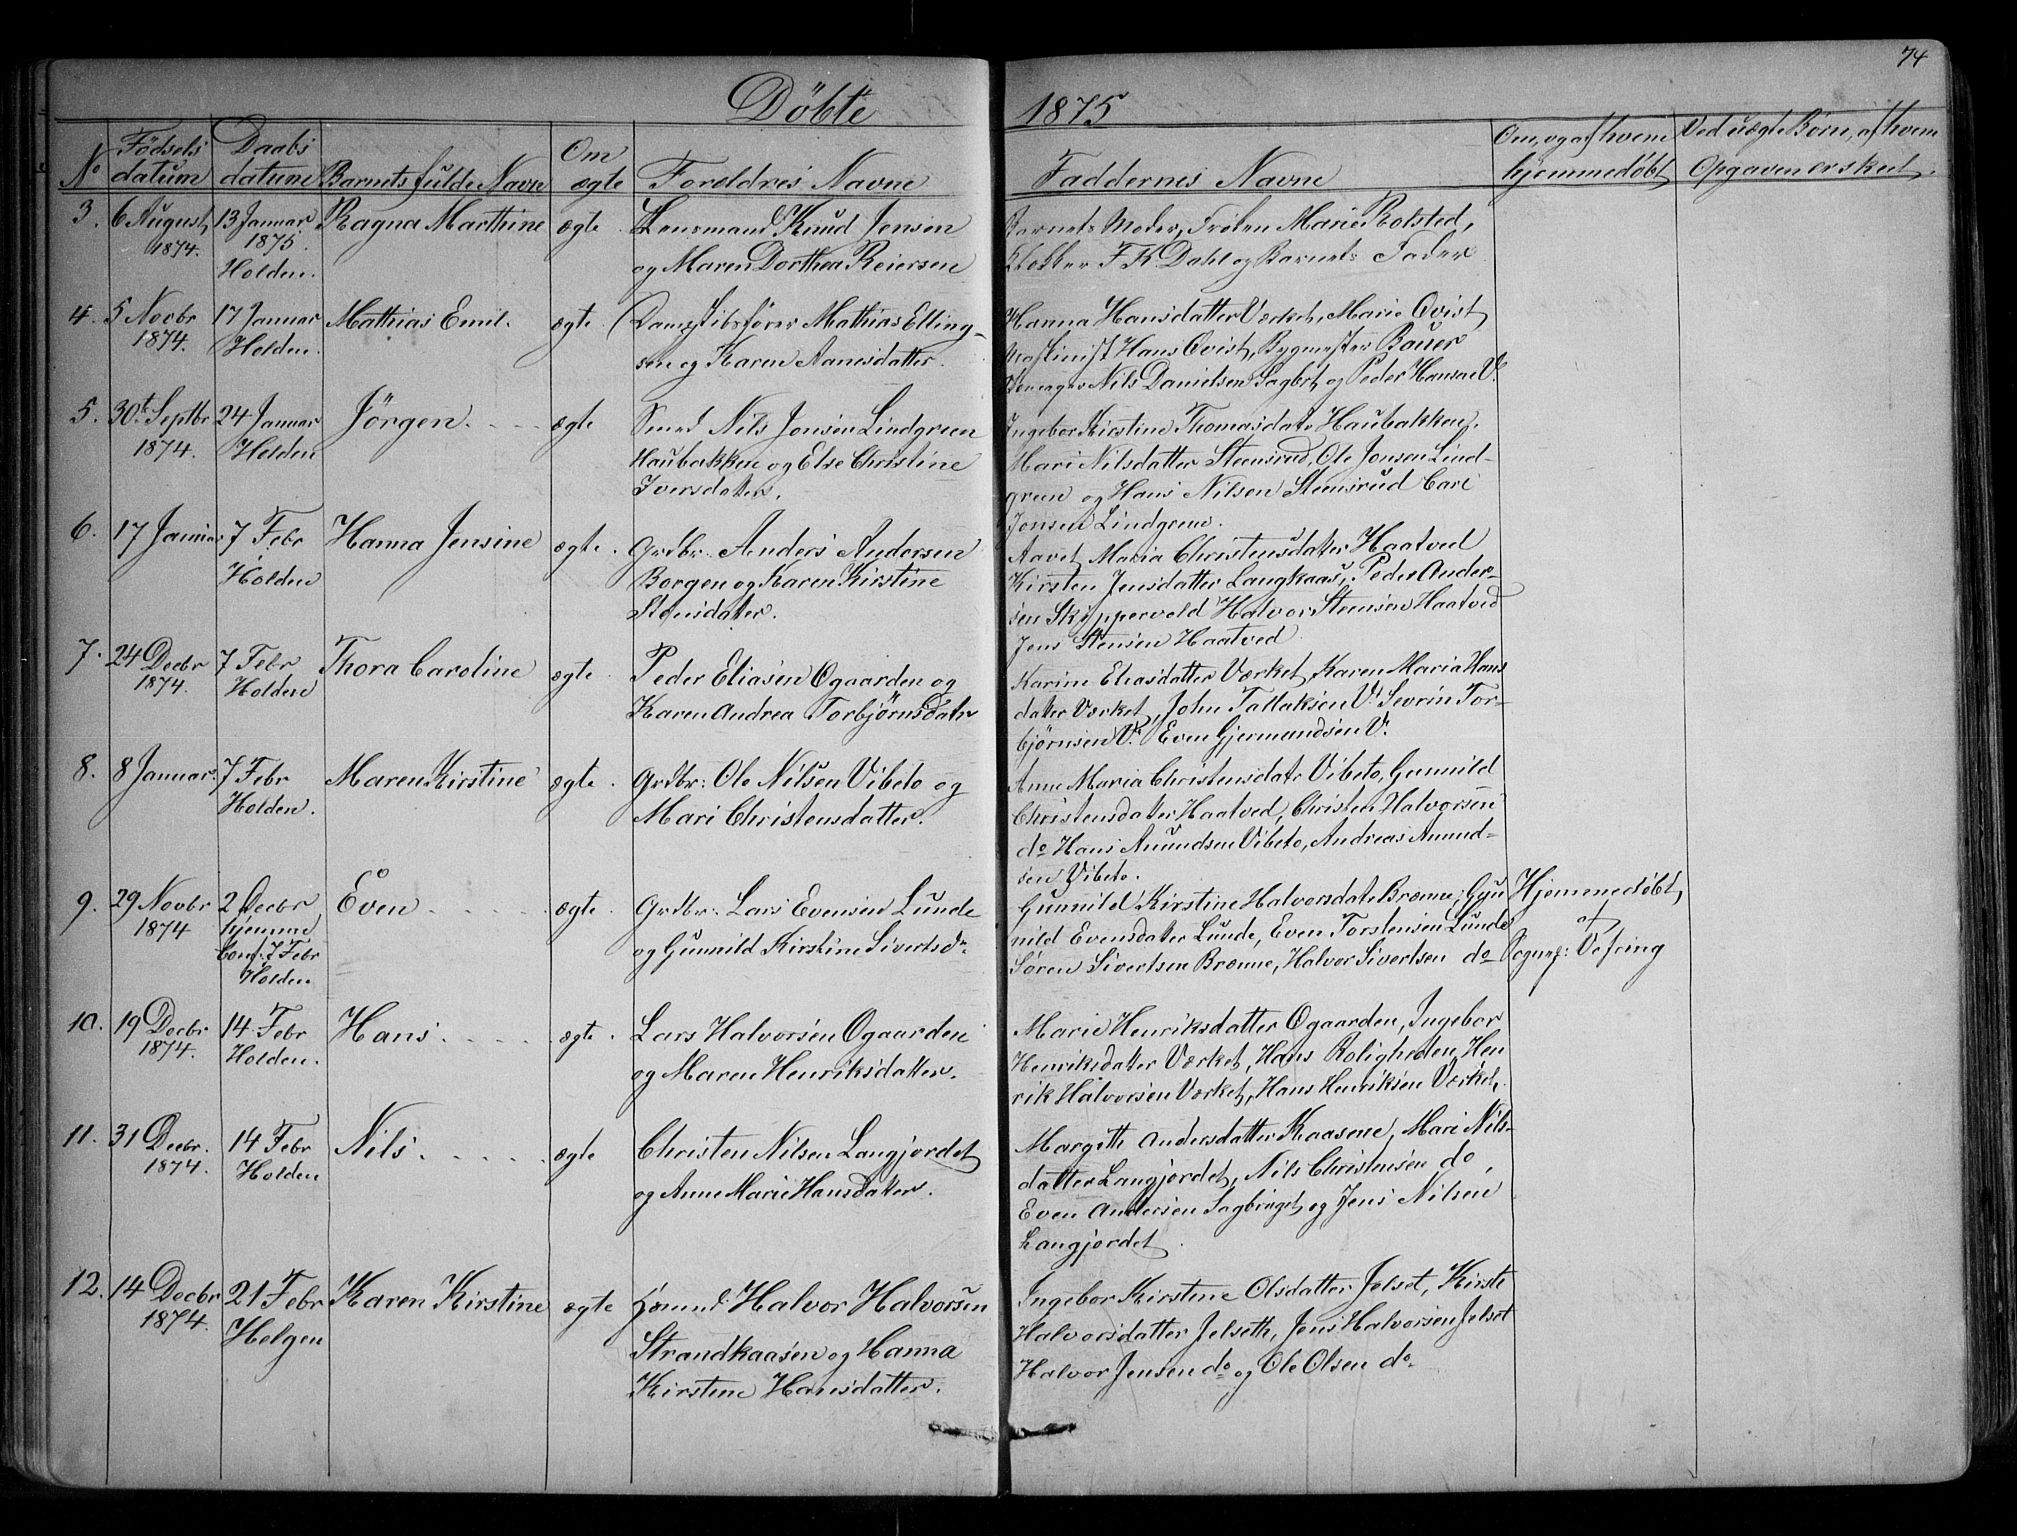 74
Döbte 1875
No
Födsels datum
Daabs datum
Barnets fulde Navne
Om ægte
Forældres Navne
Faddernes Navne
Om, og af hvem hjemmedöbt
Ved uægte Börn, af hvem Opgaven er skeet.
3. 6 August 1874. 13 Januar 1875. Holden. Ragna Marthine ægte.
Lensmand Knud Jensen
og Maren Dorthea Reiersen
Barnets Moder, Fröken Marie Rolsted,
Klokker F K Dahl og Barnets Fader
4. 5 Novbr 1874. 17 Januar Holden. Mathias Emil. ægte.
Dampskibsförer Mathias Elling-
sen og Karen Aanesdatter.
Hanna Hansdatter Værket, Marie Qvist,
Maskinist Hans Qvist, Bygmester Bauer
Nils Danielsen Sagbrt og Peder Hansen V.
5. 30t Septbr 1874. 24 Januar Holden Jörgen. ægte
Smed Nils Jonsen Lindgreen
Haubakken og Else Christine
Iversdater.
Ingebor Kirstine Thomasdatr Haubakken,
Mari Nilsdatter Steensrud, Ole Jonsen Lind-
green og Hans Nilsen Steensrud Carl
Jonsen Lindgreen.
6. 17 Januar 7 Febr Holden Hanna Jensine ægte.
Grdbr: Anders Andersen
Borgen og Karen Kirstine
Stensdater.
Maria Christensdater Haatved
Kirsten Jensdatter Langkaas, Peder Ander-
sen Skippervold Halvor Steensen Haatved
Jens Stensen Haatved
7. 24 Decbr 1874. 7 Febr Holden Thora Caroline ægte.
Peder Eliasen Ogaarden og
Karen Andrea Torbjörnsdatr
Karine Eliasdatter Værket, Karen Maria Hans
dater Værket, John Tallaksen V. Sevrin Tor-
björnsen V. Even Gjermundsen V.
8. 8 Januar. 7 Febr Holden. Maren Kirstine ægte.
Grdbr: Ole Nilsen Vibeto og
Mari Christensdatter.
Anne Maria Christensdatr Vibeto, Gunnild
Christensdater Haatved, Christen Halvorsen
do Hans Amundsen Vibeto, Andreas Amund-
sen Vibeto.
9. 29 Novbr 1874 2 Decbr hjemme Conf: 7 Febr Holden Even ægte.
Grdbr: Lars Evensen Lunde
og Gunnild Kirstine Sivertsdr
Gunnild Kirstine Halvorsdatr Brænne, Gun
nild Evensdater Lunde, Even Torstensen Lunde
Sören Sivertsen Brænne, Halvor Sivertsen do
Hjemmedöbt,
af
Sognepr: Vefring
10. 19 Decbr 1874. 14 Febr Holden. Hans. ægte.
Lars Halvorsen Ogaarden
og Maren Henriksdatter.
Marie Henriksdatter Ogaarden, Ingebor
Henriksdatter Værket, Hans Roligheden, Hen
rik Halvorsen Værket, Hans Henriksen Værket,
11. 31 Decbr. 1874. 14 Febr Holden Nils. ægte
Christen Nilsen Langjordet
og Anne Marie Hansdater.
Margith Andersdatter Kaasene, Mari Nils-
datter Langjordet, Nils Christensen do,
Even Andersen Sagbruget og Jens Nilsen
Langjordet.
12. 14 Decbr 1874. 21 Febr Helgen Karen Kirstine ægte
Halvor Halvorsen
Strandkaasen og Hanna
Kirstine Hansdatter.
Ingebor Kirstine Olsdatter Jelset, Kirsti
Halvorsdatter Jelseth, Jens Halvorsen Jelset
Halvor Jensen do og Ole Olsen do.